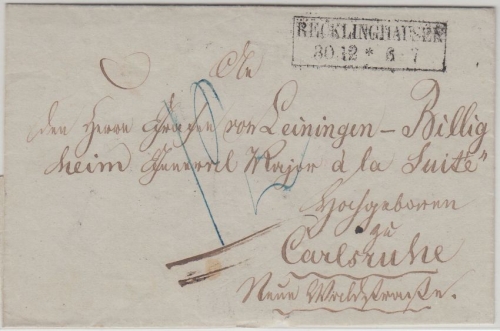 RECKLINGHAUSEN
30.12 * 6-7
An
den Herrn Grafen von Leiningen-Billig
heim General Major à la Suite"
Hochgeboren
zu
Carlsruhe
Neue Waldstraße.